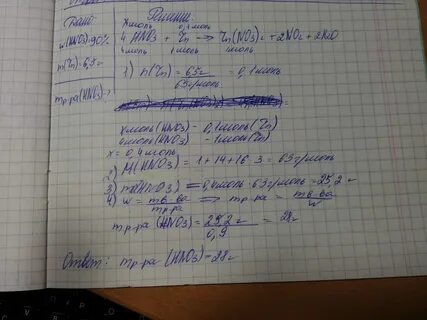 Дано:
Решение
w(HNO3)=90%
m(Zn)=6,5г
mр-ра(HNO3)-?
xмоль 0,1моль
4 HNO3 + Zn → Zn(NO3)2 + 2NO2 + 2H2O
4моль 1моль 1моль
1) n(Zn) = 6,5г / 65г/моль = 0,1моль
xмоль(HNO3) - 0,1моль(Zn)
4моль(HNO3) - 1моль(Zn)
x = 0,4моль
2) M(HNO3) = 1+14+16·3 = 63г/моль
3) m(HNO3) = 0,4моль·63г/моль = 25,2г
4) w = mв-ва / mр-ра ⟹ mр-ра = mв-ва / w
mр-ра(HNO3) = 25,2г / 0,9 = 28г
Ответ: mр-ра (HNO3) = 28г